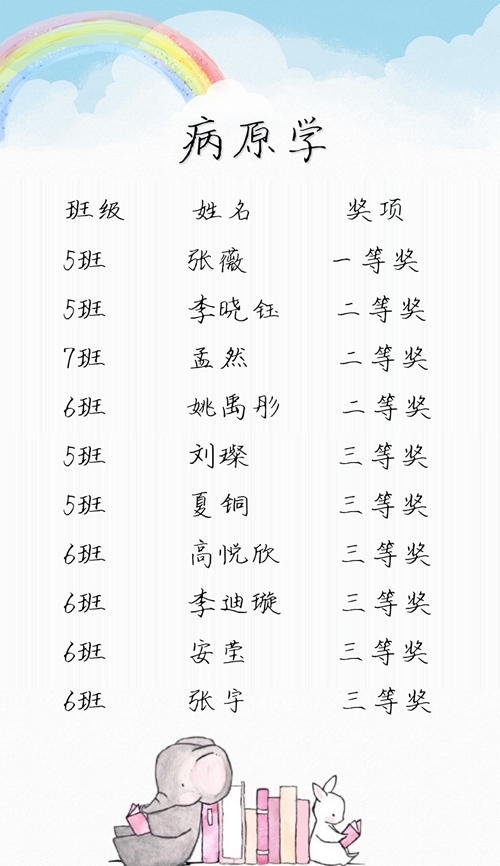 病原学
班级 姓名 奖项
5班 张薇 一等奖
5班 李晓钰 二等奖
7班 孟然 二等奖
6班 姚禹彤 二等奖
5班 刘璨 三等奖
5班 夏铜 三等奖
6班 高悦欣 三等奖
6班 李迪璇 三等奖
6班 安莹 三等奖
6班 张宇 三等奖